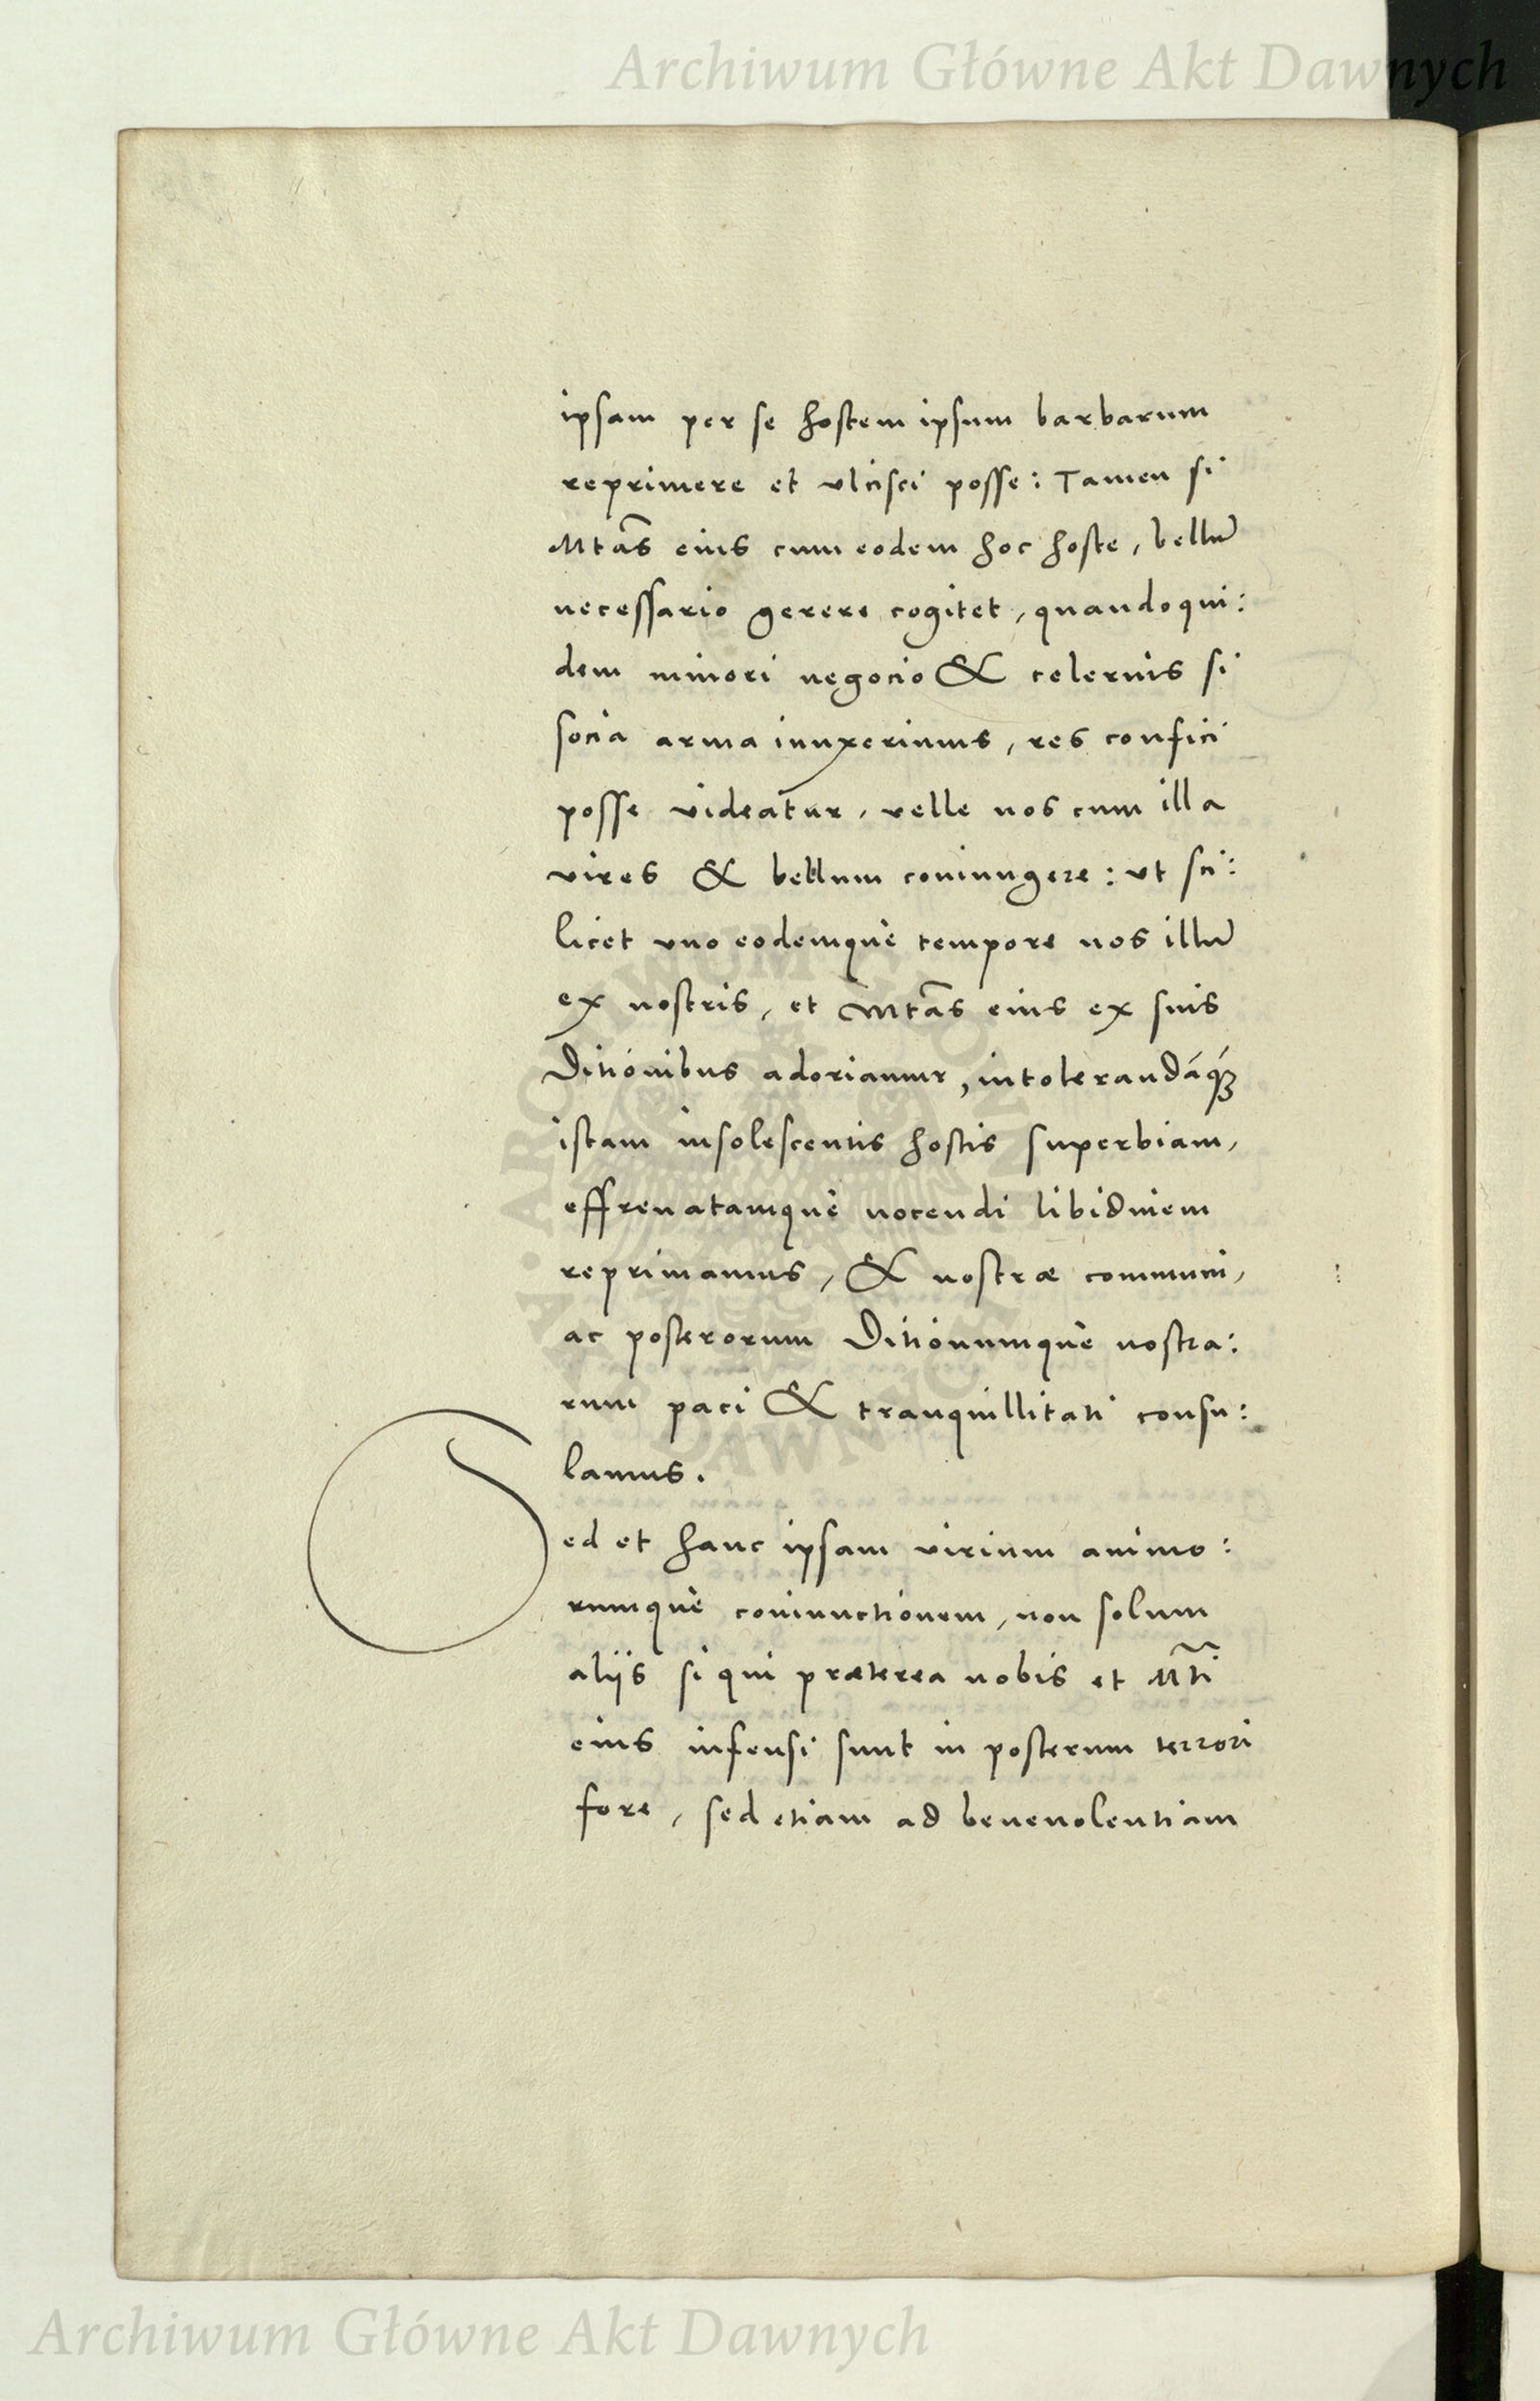 Archiwum Główne Akt Dawnych
ipsam per se hostem ipsum barbarum
reprimere et vlcisci posse: Tamen si
Mtãs eius cum eodem hoc hoste, bellũ
necessario gerere cogitet, quandoqui:
dem minori negocio & celerius si
socia arma iunxerimus, res confici
posse videatur, velle nos cum illa
vires & bellum coniungere: vt sci:
licet vno eodemquè tempore nos illũ
ex nostris, et Mtãs eius ex suis
Ditionibus adoriamur, intolerandáq́ꝫ
istam insolescentis hostis superbiam,
effrenatamquè nocendi libidinem
reprimamus, & nostræ communi,
ac posterorum Ditionumquè nostra:
rum paci & tranquillitati consu:
lamus.
Sed et hanc ipsam virium animo:
rumquè coniunctionem, non solum
aliis si qui præterea nobis et Mt̃i
eius infensi sunt in posterum terrori
fore, sed etiam ad beneuolentiam
Archiwum Główne Akt Dawnych